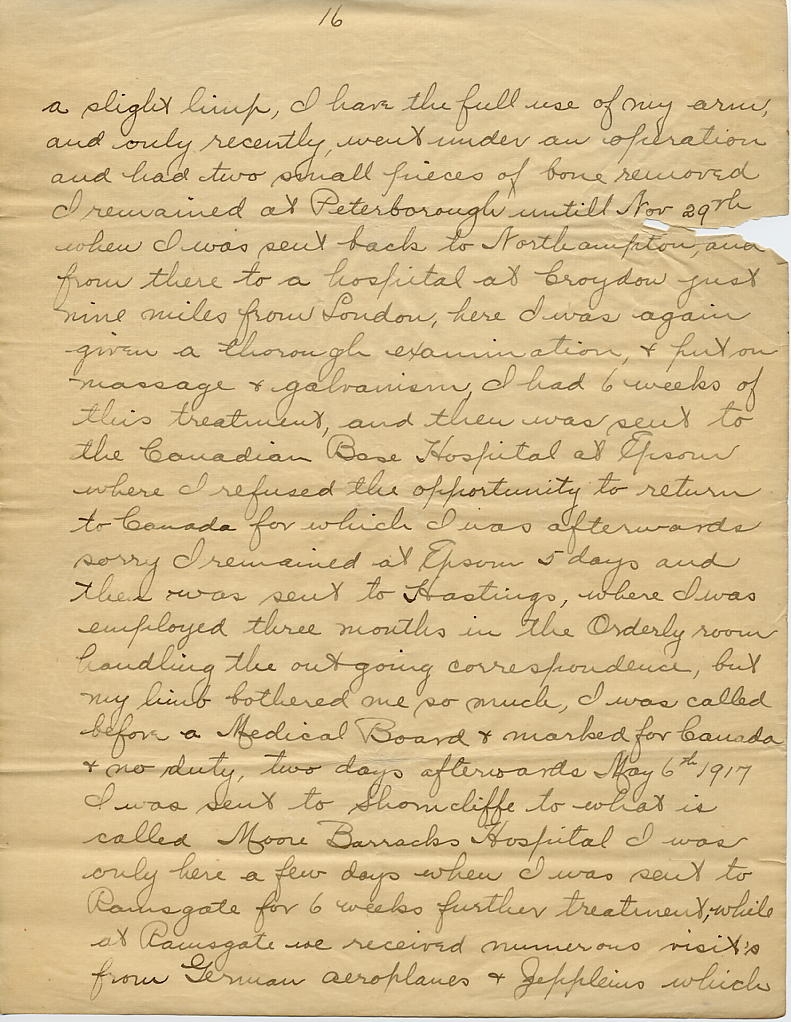 16
a slight limp, I have the full use of my arm,
and only recently, went under an operation
and had two small pieces of bone removed
I remained at Peterborough untill Nov 29th
when I was sent back to Northampton, and
from there to a hospital at Croydon just
nine miles from London, here I was again
given a thorough examination, & put on
massage & galvanism, I had 6 weeks of
this treatment, and then was sent to
the Canadian Base Hospital at Epsom
where I refused the opportunity to return
to Canada for which I was afterwards
sorry I remained at Epsom 5 days and
then was sent to Hastings, where I was
employed three months in the Orderly room
handling the out going correspondence, but
my limb bothered me so much, I was called
before a Medical Board & marked for Canada
& no duty, two days afterwards May 6th 1917
I was sent to Shorncliffe to what is
called Moore Barracks Hospital I was
only here a few days when I was sent to
Ramsgate for 6 weeks further treatment, while
at Ramsgate we received numerous visit's
from German aeroplanes & Zeppleins which